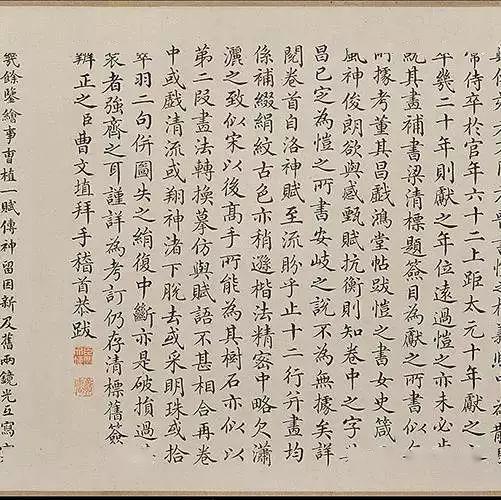 常侍卒於官年六十二上距太元十年獻之
年幾二十年則獻之年位遠過愷之亦未必
就其畫補書梁清標題簽目為獻之所書似
所據考董其昌戲鴻堂帖跋愷之書女史箴
風神俊朗欲與感甄賦抗衡則知卷中之字
昌已定為愷之所書安岐之說不為無據矣詳
閱卷首自洛神賦至流盼乎止十二行并畫均
係補綴絹紋古色亦稍遜楷法精密中略欠瀟
灑之致似宋以後高手所能為其樹石亦似以
第二段畫法轉換摹仿與賦語不甚相合再卷
中或戲清流或翔神渚下脫去或采明珠或拾
翠羽二句併圖失之絹復中斷亦是破損過
裝者強齊之耳謹詳為考訂仍存清標舊簽
辨正之臣曹文埴拜手稽首恭跋
幾餘鑒繪事曹植一賦傳神留因新及舊兩鏡光互寫